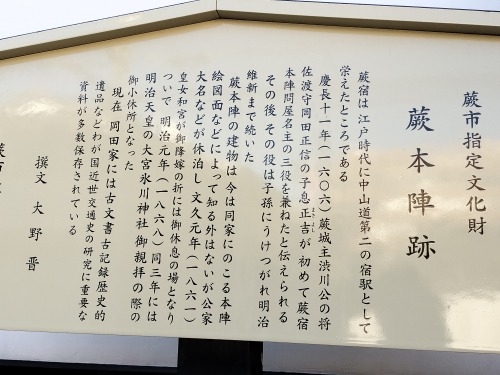 蕨市指定文化財
蕨本陣跡
蕨宿は江戸時代に中山道第二の宿駅として
栄えたところである
慶長十一年(一六〇六)蕨城主渋川公の将
佐渡守岡田正信の子息正吉が初めて蕨宿
本陣問屋名主の三役を兼ねたと伝えられる
その後その役は子孫にうけつがれ明治
維新まで続いた
蕨本陣の建物は今は同家にのこる本陣
絵図面などによって知る外はないが公家
大名などが休泊し文久元年(一八六一)
皇女和宮が御降嫁の折には御休息の場となり
ついで明治元年(一八六八)同三年には
明治天皇の大宮氷川神社御親拝の際の
御小休所となった
現在岡田家には古文書古記録歴史的
遺品などわが国近世交通史の研究に重要な
資料が多数保存されている
撰文 大野晋